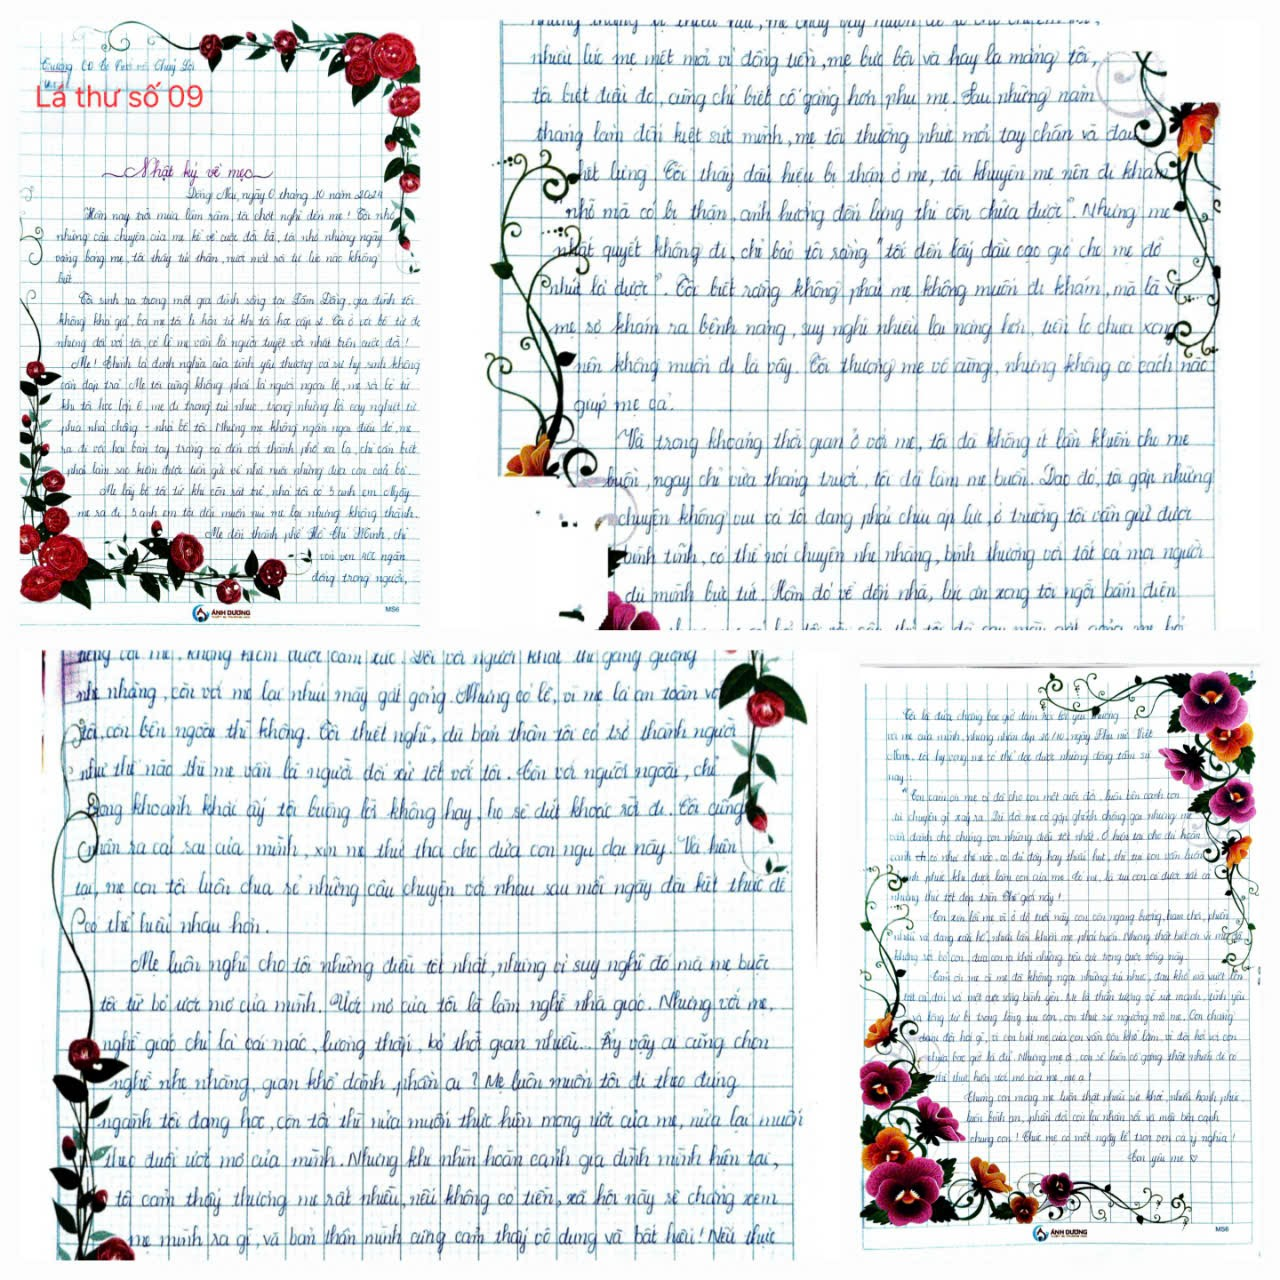 Trường CĐ Cơ Giới và Thuỷ Lợi
Lá thư số 09
Nhật ký về mẹ
Đồng Nai, ngày 6 tháng 10 năm 2024
Hôm nay trời mưa lâm râm, tôi chợt nghĩ đến mẹ! Tôi nhớ
những câu chuyện của mẹ kể về cuộc đời bà, tôi nhớ những ngày
vắng bóng mẹ, tôi thấy tủi thân, nước mắt rơi tự lúc nào không
biết
Tôi sinh ra trong một gia đình sống tại Lâm Đồng, gia đình tôi
không khá giả, ba mẹ tôi li hôn từ khi tôi học cấp 2. Tôi ở với bố từ đó
nhưng đối với tôi, có lẽ mẹ vẫn là người tuyệt vời nhất trên cuộc đời!
Mẹ! Chính là định nghĩa của tình yêu thương và sự hy sinh không
cần đáp trả. Mẹ tôi cũng không phải là người ngoại lệ, mẹ rời bỏ từ
khi tôi học lớp 6, mẹ đi trong tủi nhục, trong những lời cay nghiệt từ
phía nhà chồng - nhà bố tôi. Nhưng mẹ không ngần ngại điều đó, mẹ
ra đi với hai bàn tay trắng và đến với thành phố xa lạ, chỉ cần biết
phải làm sao kiếm được tiền gửi về nhà nuôi những đứa con của bà.
Mẹ lấy bố tôi từ khi còn rất trẻ, nhà tôi có 3 anh em. Ngày
mẹ ra đi, 3 anh em tôi đòi muốn níu mẹ lại nhưng không thành.
Mẹ đến thành phố Hồ Chí Minh, chỉ
vỏn vẹn 400 ngàn
đồng trong người,
ÁNH DƯƠNG
MS6
nhiều lúc mẹ mệt mỏi vì đồng tiền, mẹ bực bội và hay la mắng tôi,
tôi biết điều đó, cũng chỉ biết cố gắng hơn phụ mẹ. Sau những năm
tháng làm đến kiệt sức mình, mẹ tôi thường nhức mỏi tay chân và đau
hết lưng. Tôi thấy dấu hiệu bị thận ở mẹ, tôi khuyên mẹ nên đi khám
"nhỡ mà có bị thận, ảnh hưởng đến lưng thì còn chữa được". Nhưng mẹ
nhất quyết không đi, chỉ bảo tôi rằng "tối đến lấy dầu cạo gió cho mẹ đỡ
nhức là được". Tôi biết rằng không phải mẹ không muốn đi khám, mà là vì
mẹ sợ khám ra bệnh nặng, suy nghĩ nhiều lại nặng hơn, tiền lo chưa xong
nên không muốn đi là vậy. Tôi thương mẹ vô cùng, nhưng không có cách nào
giúp mẹ cả.
Và trong khoảng thời gian ở với mẹ, tôi đã không ít lần khiến cho mẹ
buồn, ngay chỉ vừa tháng trước, tôi đã làm mẹ buồn. Dạo đó, tôi gặp những
chuyện không vui và tôi đang phải chịu áp lực, ở trường tôi vẫn giữ được
bình tĩnh, có thể nói chuyện nhẹ nhàng, bình thường với tất cả mọi người
dù mình bực tức. Hôm đó về đến nhà, lúc ăn xong tôi ngồi bấm điện
tiếng với mẹ, không kiềm được cảm xúc. Đối với người khác thì gắng gượng
nhẹ nhàng, còn với mẹ lại nhíu mày gắt gỏng. Nhưng có lẽ, vì mẹ là an toàn với
tôi, còn bên ngoài thì không. Tôi thiết nghĩ, dù bản thân tôi có trở thành người
như thế nào thì mẹ vẫn là người đối xử tốt với tôi. Còn với người ngoài, chỉ
trong khoảnh khắc ấy tôi buông lời không hay, họ sẽ dứt khoác rời đi. Tôi cũng
nhận ra cái sai của mình, xin mẹ thứ tha cho đứa con ngu dại này. Và hiện
tại, mẹ con tôi luôn chia sẻ những câu chuyện với nhau sau mỗi ngày dài kết thúc để
có thể hiểu nhau hơn.
Mẹ luôn nghĩ cho tôi những điều tốt nhất, nhưng vì suy nghĩ đó mà mẹ buộc
tôi từ bỏ ước mơ của mình. Ước mơ của tôi là làm nghề nhà giáo. Nhưng với mẹ,
nghề giáo chỉ là cái mác, lương thấp, bỏ thời gian nhiều... Ấy vậy ai cũng chọn
nghề nhẹ nhàng, gian khổ dành phần ai? Mẹ luôn muốn tôi đi theo đúng
ngành tôi đang học, còn tôi thì nửa muốn thực hiện mong ước của mẹ, nửa lại muốn
theo đuổi ước mơ của mình. Nhưng khi nhìn hoàn cảnh gia đình mình hiện tại,
tôi cảm thấy thương mẹ rất nhiều, nếu không có tiền, xã hội này sẽ chẳng xem
mẹ mình ra gì, và bản thân mình cũng cảm thấy vô dụng và bất hiếu! Nếu thực
Tôi là đứa chẳng bao giờ dám nói lời yêu thương
với mẹ của mình, nhưng nhân dịp 20/10, ngày Phụ nữ Việt
Nam, tôi hy vọng mẹ có thể đọc được những dòng tâm sự
này:
"Con cảm ơn mẹ vì đã cho con một cuộc đời, luôn bên cạnh con
dù chuyện gì xảy ra. Dù đời mẹ có gặp ghềnh chông gai nhưng mẹ
vẫn dành cho chúng con những điều tốt nhất. Ở hiện tại cho dù hoàn
cảnh có như thế nào, có đủ đầy hay thiếu hụt, thì tụi con vẫn luôn
hạnh phúc khi được làm con của mẹ. Có mẹ, là tụi con có được tất cả
những thứ tốt đẹp trên Thế giới này!
Con xin lỗi mẹ vì ở độ tuổi này con còn ngang bướng, ham chơi, phiền
nhiễu và đang xấu hổ, nhiều lần khiến mẹ phải buồn. Nhưng thật biết ơn vì mẹ đã
không rời bỏ con, đưa con ra khỏi những tiêu cực trong cuộc sống này.
Cảm ơn mẹ vì mẹ đã không ngại những tủi nhục, đau khổ mà vượt lên
tất cả, đổi vì một cuộc sống bình yên. Mẹ là thần tượng về sức mạnh, tình yêu
và lòng từ bi trong lòng tụi con, con thực sự ngưỡng mộ mẹ. Con chẳng
dám đòi hỏi gì, vì con biết mẹ của con vẫn còn khổ lắm, vì đời hỏi với con
chưa bao giờ là đủ. Nhưng mẹ ơi, con sẽ luôn cố gắng thật nhiều để có
thể thực hiện ước mơ của mẹ, mẹ ạ!
Chúng con mong mẹ luôn thật nhiều sức khoẻ, nhiều hạnh phúc
luôn bình an, phấn đời còn lại nhàn rỗi và mãi bên cạnh
chúng con! Chúc mẹ có một ngày lễ trọn vẹn và ý nghĩa!
Con yêu mẹ ♡
ÁNH DƯƠNG
MS6